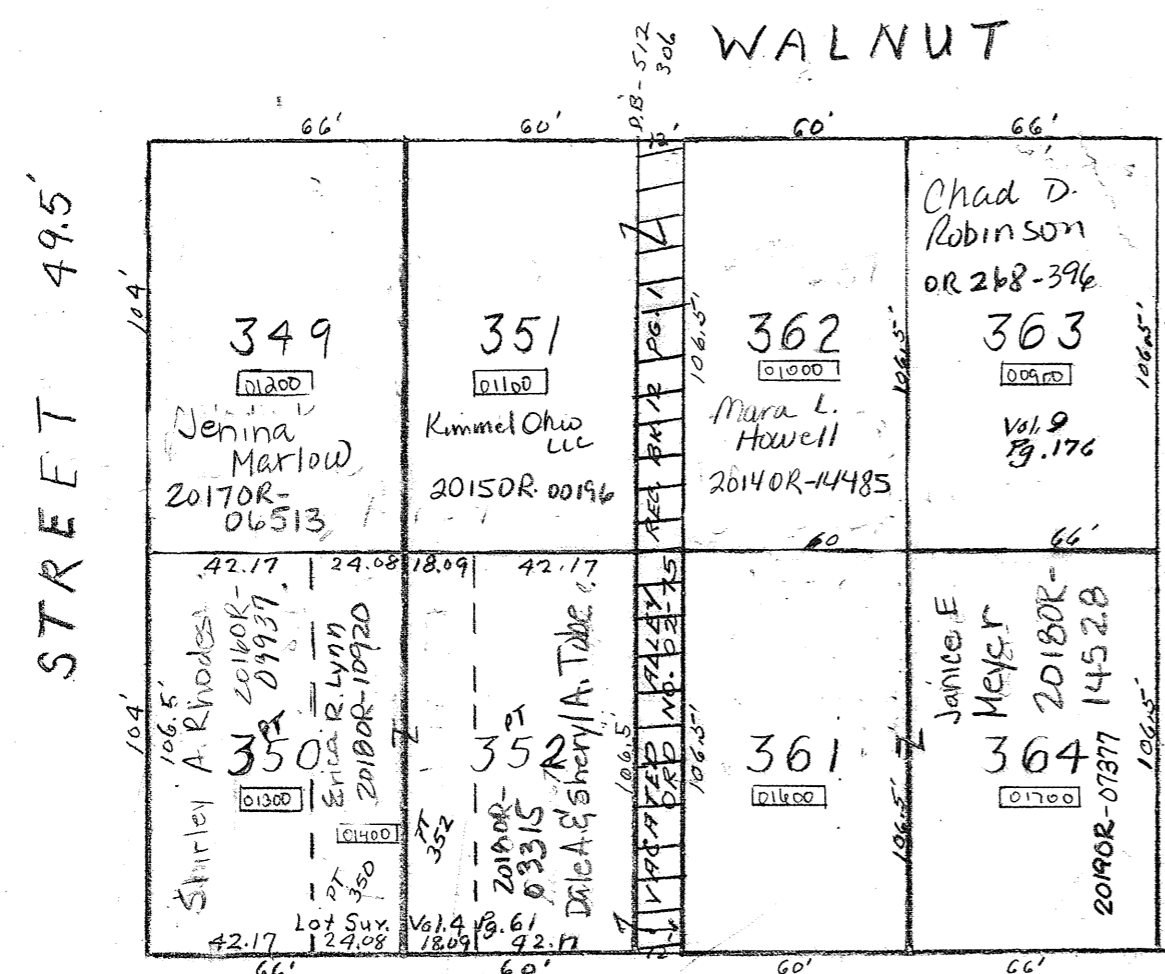 WALNUT
D.B-512
306
STREET 49.5'
66'
60'
60'
66'
104'
349
01200
Jenina
Marlow
2017OR-
06513
351
01100
Kimmel Ohio
LLC
2015OR-00196
VACATED ALLEY REC BK 12 PG. 1
ORD NO. 02-75
106.5'
362
01000
Mara L.
Howell
2014OR-14485
106.5'
Chad D.
Robinson
OR 268-396
363
00900
Vol. 9
Pg. 176
106.5'
60
66'
42.17
24.08
18.09
42.17
104'
106.5'
Shirley A. Rhodes
2016OR-
09937
PT
350
01300
Erica R. Lynn
2018OR-10920
01400
PT
350
PT
352
PT
352
2018OR-
03315
Dale A & Sheryl A. Tube
106.5'
106.5'
361
01600
106.5'
Janice E
Meyer
2018OR-
14528
364
01700
2019OR-07377
106.5'
Lot Sur. Vol. 4 Pg. 61
42.17
24.08
18.09
42.17
66'
60'
60'
66'